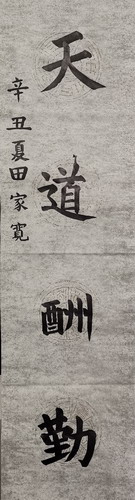 天道酬勤
辛丑夏田家寬